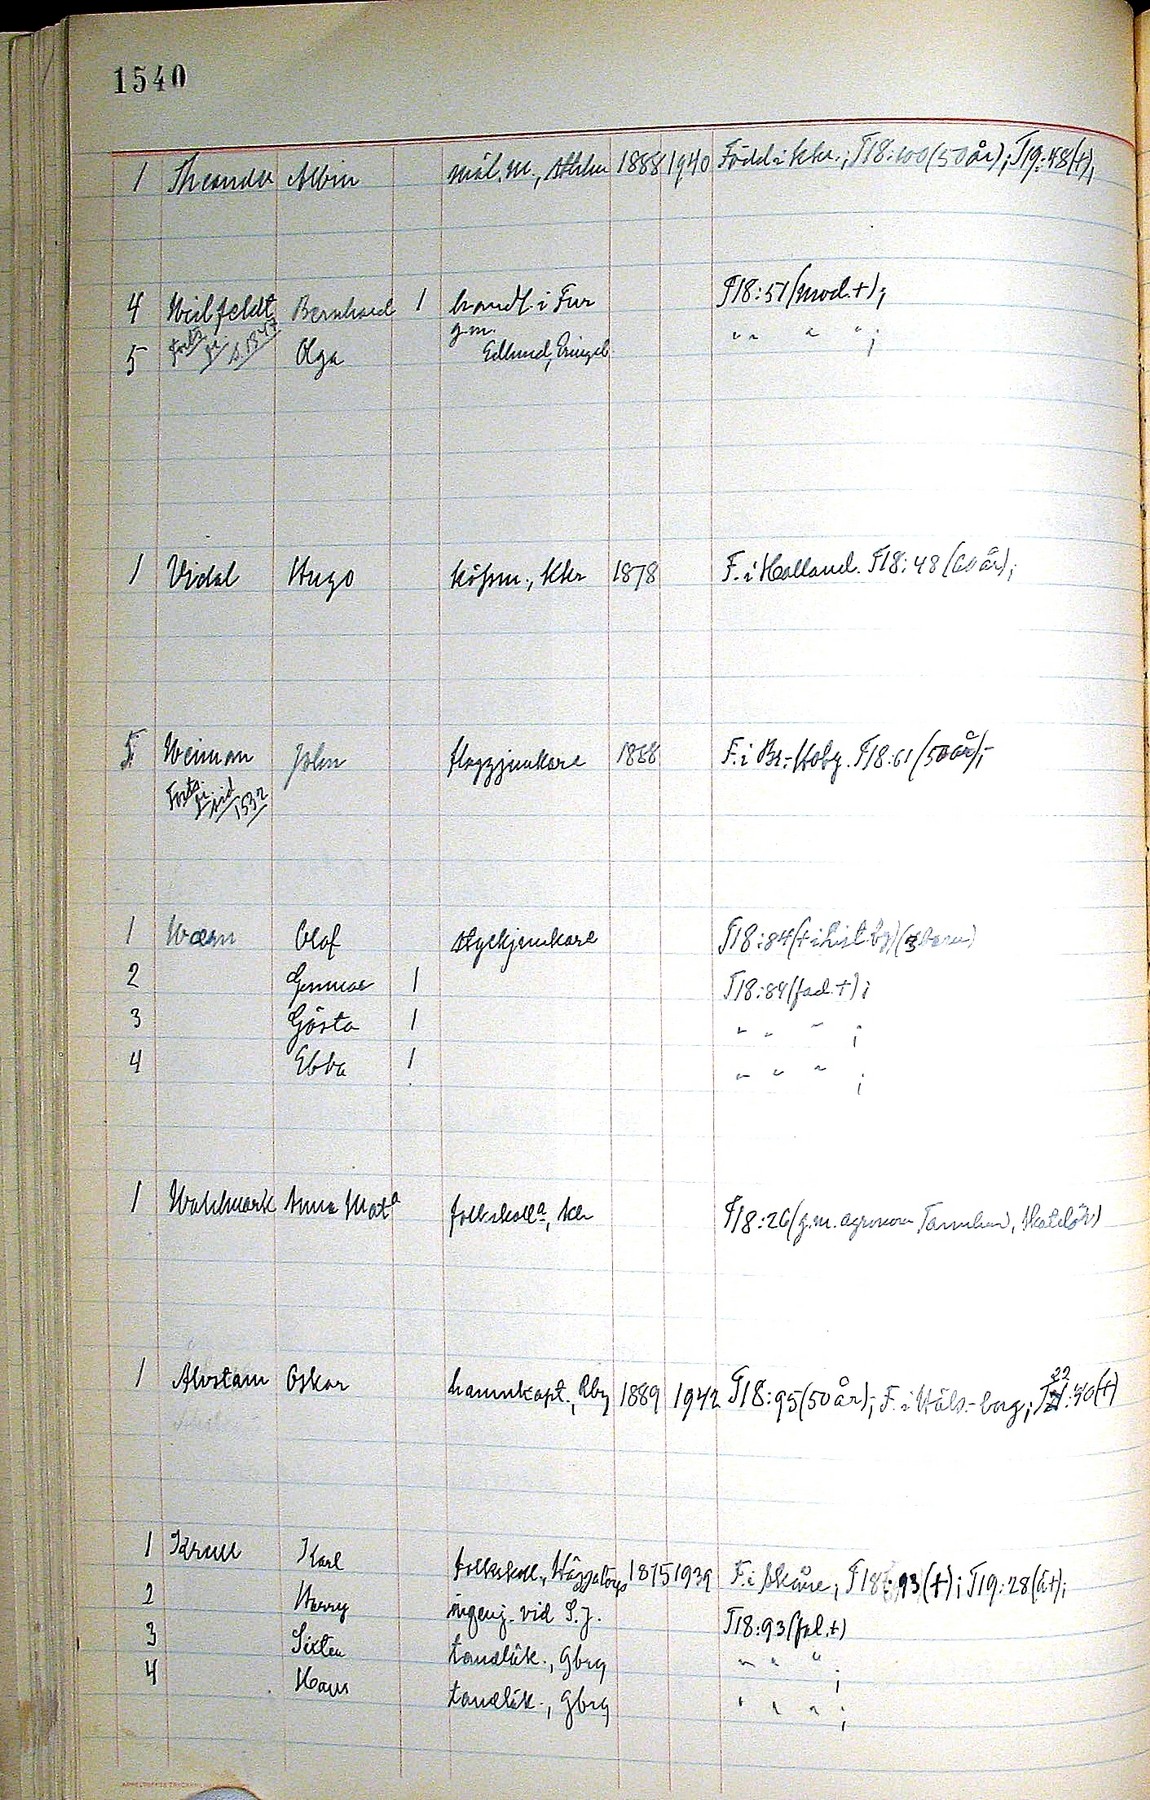 1540
1 Theander Albin mål.m., Sthlm 1888 1940 Född i Kkr.; T18:100(50 år); T19:48(†);
4 Weilfeldt Bernhard 1 handl. i Fur T18:51(mod.†);
Forts. fr. s. 1347 g.m. " " " " ;
5 Olga Edlund, Eringsb
1 Vidal Hugo köpm., Kkr 1878 F. i Halland. T18:48 (60 år);
5 Weiman John flaggjunkare 1888 F. i Br.-Hoby. T18:61 (50 år);
Forts. fr. sid 1532
1 Wærn Olof styckjunkare T18:84(
2 Gunnar 1 T18:84(fad.†);
3 Gösta 1 " " " ;
4 Ebba 1 " " " ;
1 Wahlmark Anna Mata folkskolla, Kkr T18:26(g.m. agronom Skatelöv)
1 Alvstam Oskar hamnkapt., Rby 1889 1942 T18:95(50 år); F. i Häls.-borg; T22:40(†)
1 Krull Karl folkskoll., Häggatorp 1875 1939 F. i Skåne, T18:93(†); T19:28(åt);
2 Harry ingenj. vid S.J. T18:93(fad.†)
3 Sixten tandläk., Gbrg " " " ;
4 Hans tandläk., Gbrg " " " ;